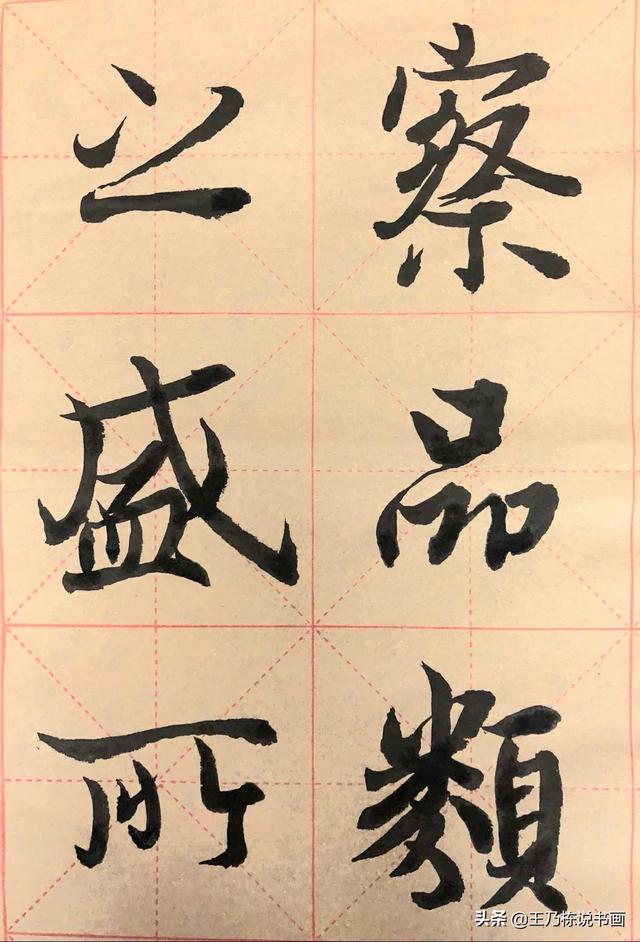 察品類
之盛所
头条 @王乃栋说书画